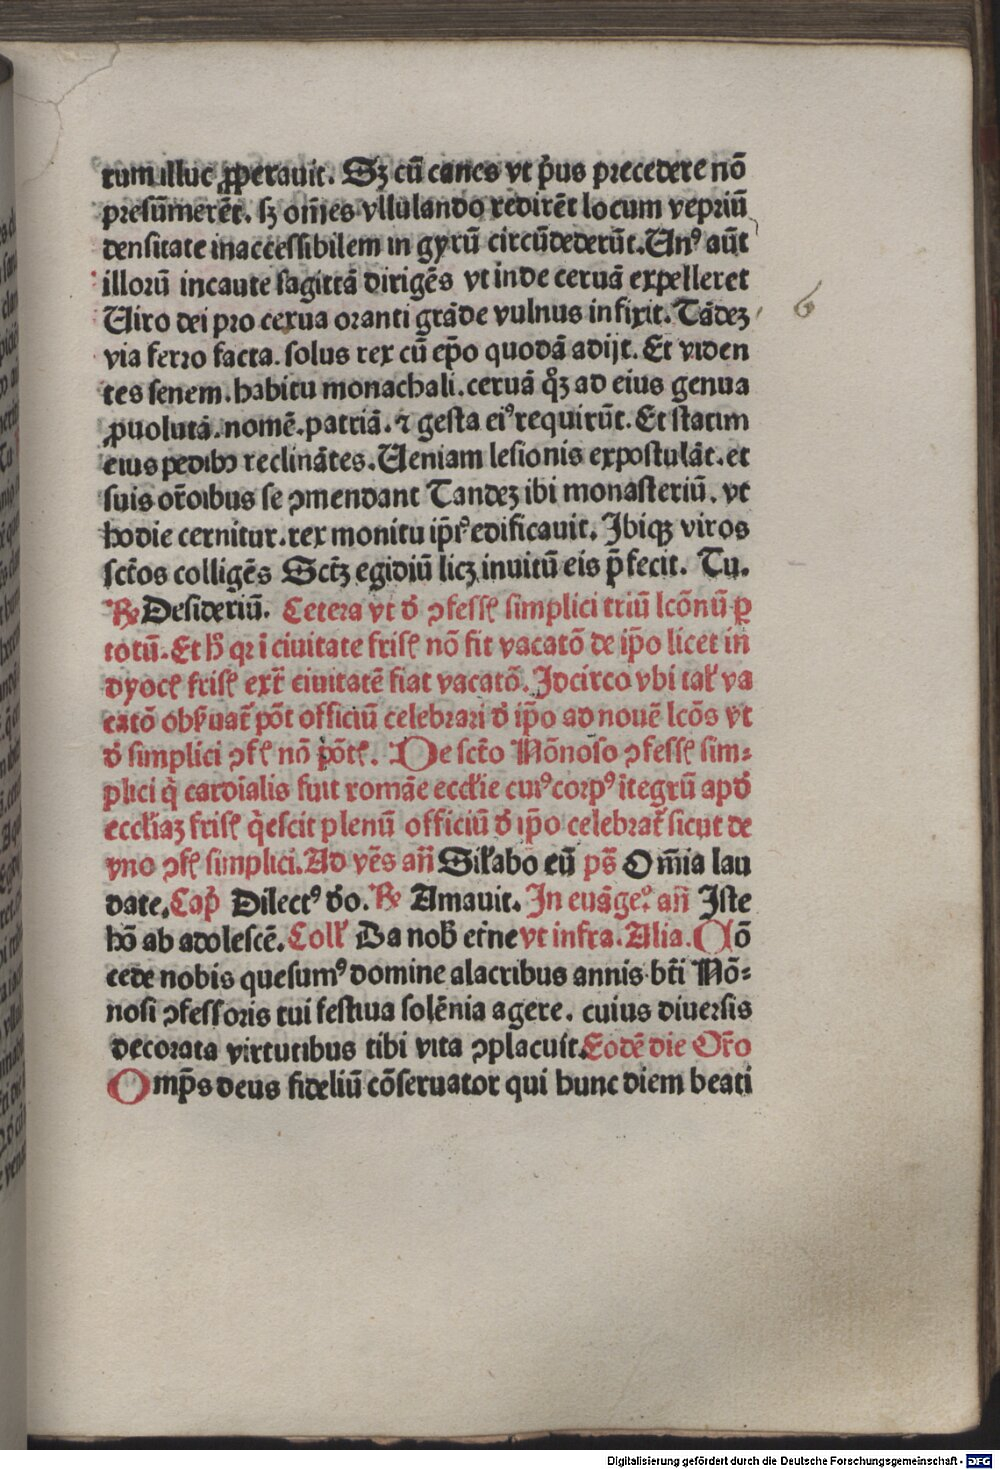 rum illuc ꝓperauit. Sꝫ cū canes vt p̄us precedere nō
presūmerēt. sꝫ om̄es vllulando redirēt locum vepriū
densitate inaccessibilem in gyrū circūdederūt. Unꝰ aūt
illorū incaute sagittā dirigēs vt inde ceruā expelleret
Uiro dei pro cerua oranti grāde vulnus infixit. Tādeꝫ
6
via ferro facta. solus rex cū ep̄o quodā adijt. Et viden
tes senem. habitu monachali. ceruā qꝫ ad eius genua
ꝓuolutā. nomē. patriā. ⁊ gesta eiꝰ requirūt. Et statim
eius pedibꝫ reclinātes. Ueniam lesionis expostulāt. et
suis or̄oibus se ꝯmendant Tandeꝫ ibi monasteriū. vt
hodie cernitur. rex monitu ip̄iꝰ edificauit. Ibiqꝫ viros
sct̄os colligēs Sctꝫ egidiū licꝫ inuitū eis p̄fecit. Tu.
℟ Desideriū. Cetera vt d̓ ꝯfesẜ simplici triū lcōnū ꝑ
totū. Et hͦ qr ī ciuitate frisꝭ nō fit vacatō de ip̄o licet in
dyocꝭ frisꝭ extͣ ciuitatē fiat vacatō. Idcirco vbi talꝭ va
catō obẜuat̄ pōt officiū celebrari d̓ ip̄o ad nouē lcōs vt
d̓ simplici ꝯfꝭ nō pōtꝭ. De sct̄o Nōnoso ꝯfesẜ sim⸗
plici q̇ cardīalis fuit romāe eccl̄ie cuiꝰ corpꝰ ītegrū apd̓
eccl̄iaꝫ frisꝭ q̇escit plenū officiū d̓ ip̄o celebrat̄ sicut de
vno ꝯfꝭ simplici. Ad vēs an̄ Sil̄abo eū ps̄ Om̄ia lau
date. Cap̄ Dilectꝰ d̓o. ℟ Amauit. In euāge.ͦ an̄ Iste
hō ab adolescē. Coll̄ Da nob̄ et̄ne vt infra. Alia. Cō
cede nobis quesumꝰ domine alacribus annis bt̄i Nō⸗
nosi ꝯfessoris tui festiua solēnia agere. cuius diuersis
decorata virtutibus tibi vita ꝯplacuit. Eodē die Or̄o
Omp̄s deus fideliū cōseruator qui hunc diem beati
Digitalisierung gefördert durch die Deutsche Forschungsgemeinschaft - DFG